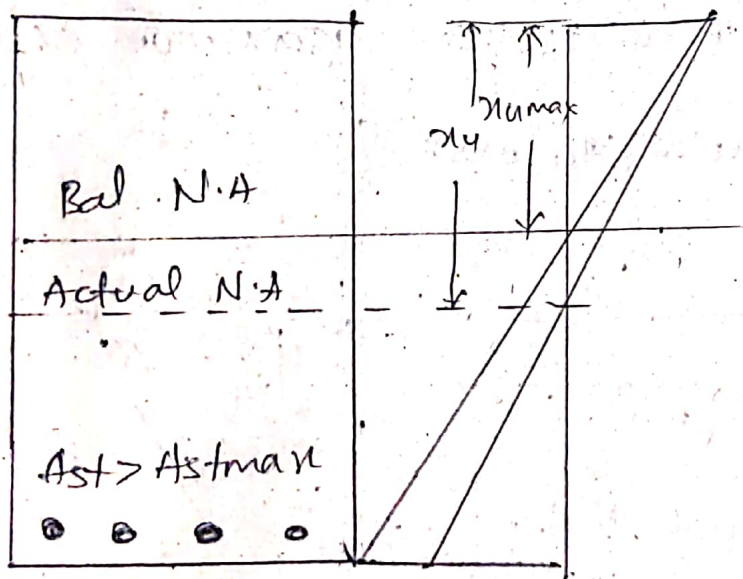 xumax
xu
Bal . N.A
Actual N.A
Ast > Astmax